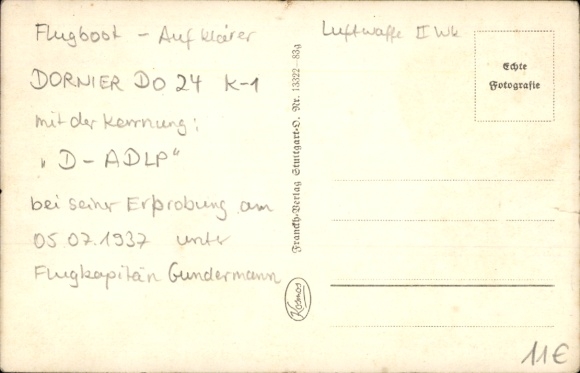 Flugboot - Aufklärer
DORNIER DO 24 K-1
mit der Kennung:
"D-ADLP"
bei seiner Erprobung am
05.07.1937 unter
Flugkapitän Gundermann
Franckh-Verlag Stuttgart-O. Nr. 13322-83a
Kosmos
Luftwaffe II Wk
Echte
Fotografie
11€